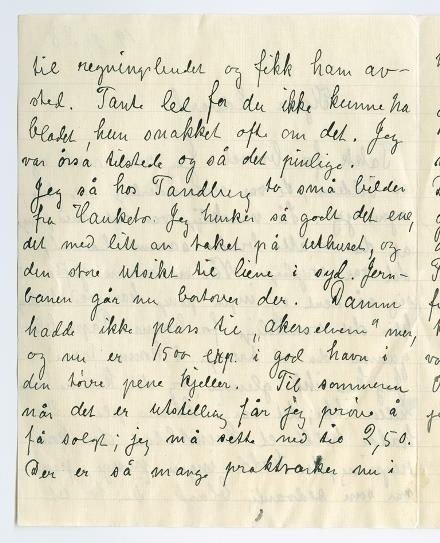 til regningsbudet og fikk ham av-
sted. Tante led for du ikke kunne ha
bladet, hun snakket ofte om det. Jeg
var også tilstede og så det pinlige.
Jeg så hos Tandberg to små bilder
fra Hauketo. Jeg husker så godt det ene,
det med litt av taket på uthuset, og
den store utsikt til liene i syd. Jern-
banen går nu bortover der. Damm
hadde ikke plass til "akerselven" mer,
og nu er 1500 exp. i god havn i
den tørre pene kjeller. Til sommeren
når det er utstilling får jeg prøve å
få solgt; jeg må sette ned til 2,50.
Der er så mange praktverker nu i